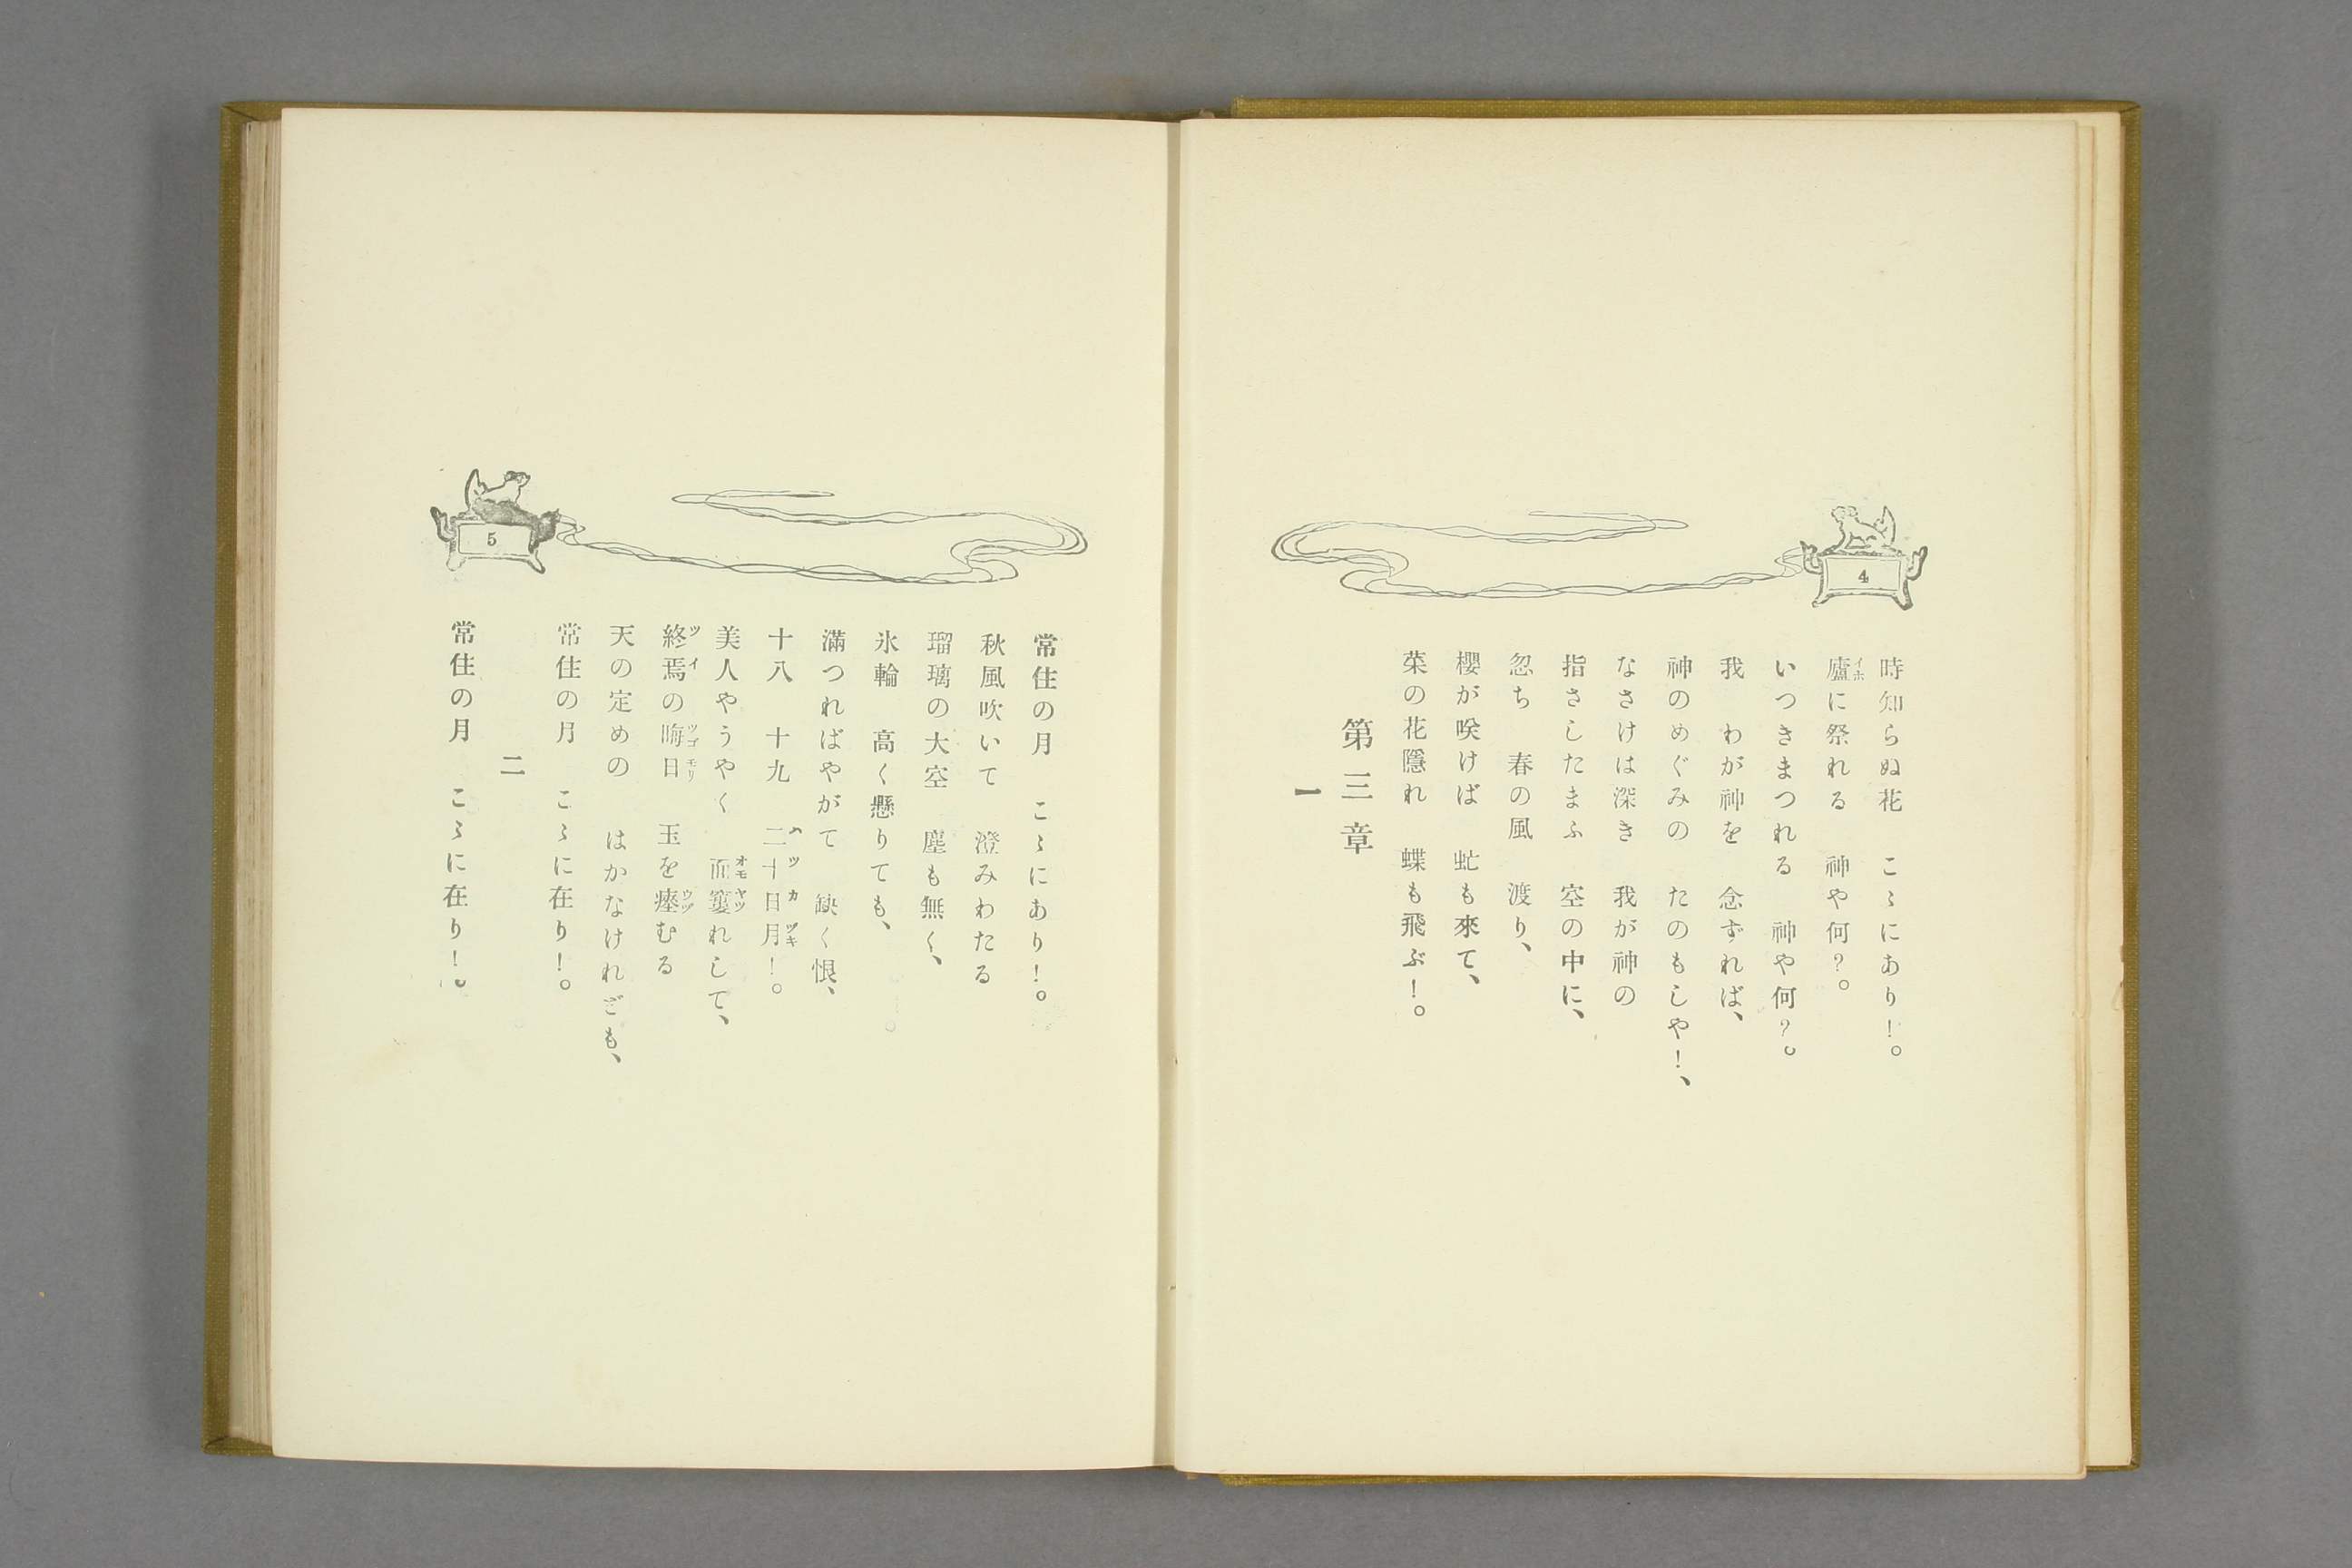 4
時知らぬ花　こゝにあり！。
廬に祭れる　神や何？。
いつきまつれる　神や何？。
我　わが神を　念ずれば、
神のめぐみの　たのもしや！、
なさけは深き　我が神の
指さしたまふ　空の中に、
忽ち　春の風　渡り、
櫻が咲けば　虻も來て、
菜の花隱れ　蝶も飛ぶ！。
第三章
一
5
常住の月　こゝにあり！。
秋風吹いて　澄みわたる
瑠璃の大空　塵も無く、
氷輪　高く懸りても、
滿つればやがて　缺く恨、
十八　十九　二十日月！。
美人やうやく　面窶れして、
終焉の晦日　玉を瘞むる
天の定めの　はかなけれども、
常住の月　こゝに在り！。
二
常住の月　こゝに在り！。